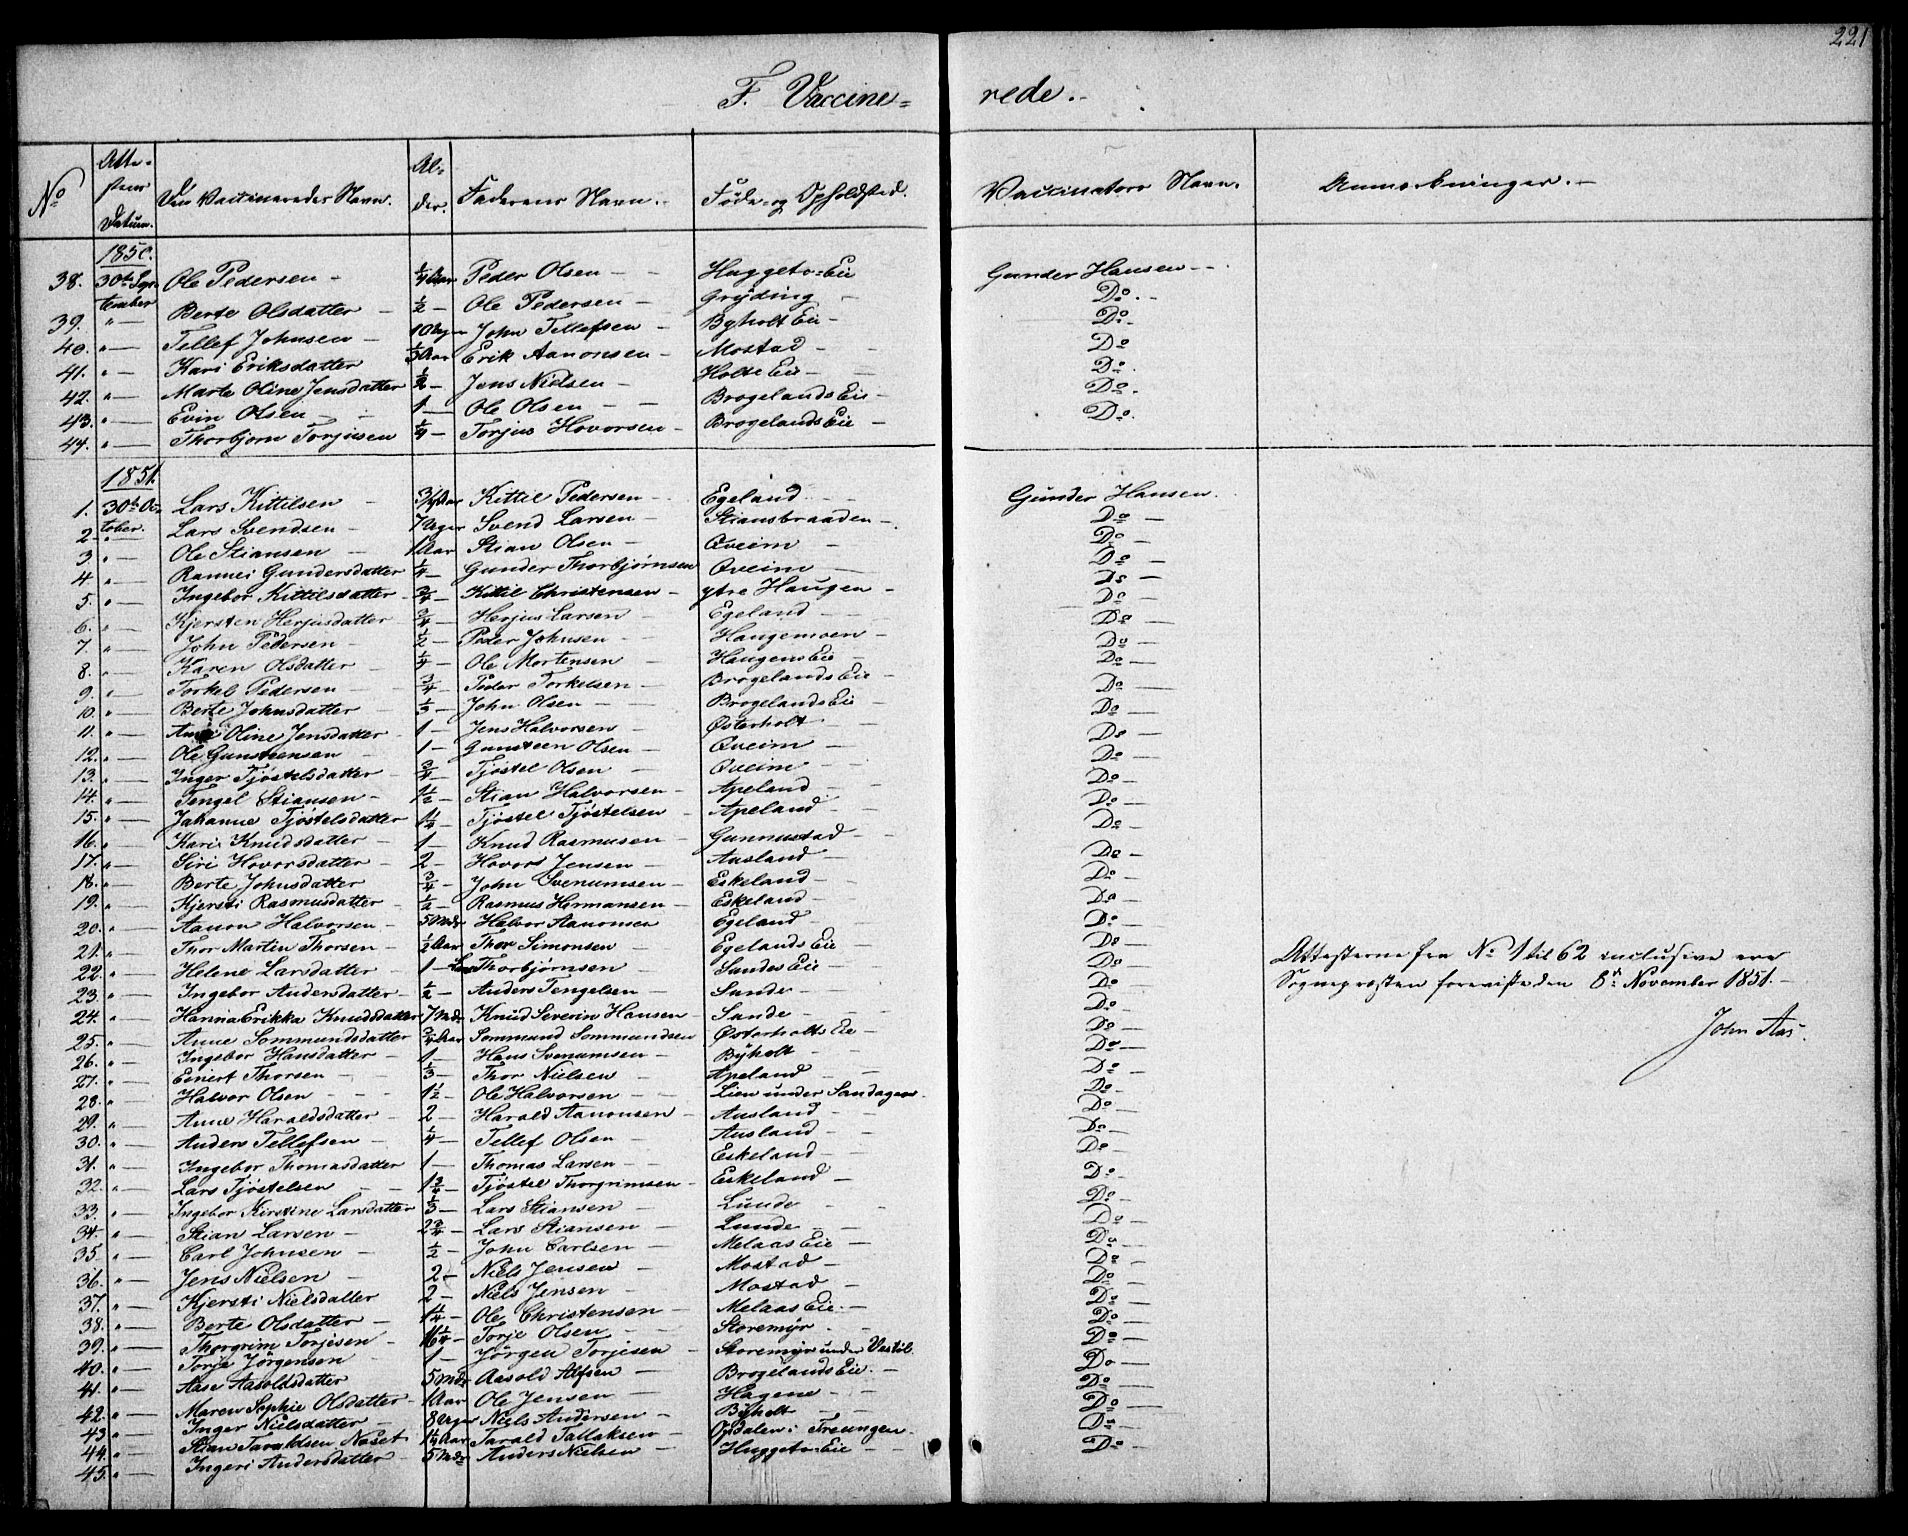 221
F. Vaccine= rede.
No Atte- stens Datum. Den Vaccineredes Navn. Al- der. Faderens Navn. Føde- og Opholdsted. Vaccinators Navn. Anmærkninger.
1850.
38. 30te Sep- tember Ole Pedersen - 1/4 Aar Peder Olsen - Huggeto=Eie Gunder Hansen -
39. " - Berte Olsdatter - 1/2 - Ole Pedersen - Grÿding - Do. -
40. " - Tellef Johnsen - 10 Uger John Tellefsen - Byholt Eie - Do. -
41. " - Kari Eriksdatter 1/3 Aar Erik Aanonsen - Mostad - Do
42. " - Marte Oline Jensdatter 1/2 - Jens Nielsen - Holte Eie - Do.
43. " - Evin Olsen - 1 - Ole Olsen - Brogelands Eie - Do -
44. " - Thorbjørn Torjusen 1/4 - Torjus Hovorsen - Brogelands Eie - Do.
1851.
1. 30te Oc- tober. Lars Kittilsen - 3/4 Aar Kittil Pedersen - Egeland - Gunder Hansen.
2. " Lars Svendsen - 7 Uger Svend Larsen - Stiansbraaden - Do -
3. " - Ole Stiansen - 1 Aar Stian Olsen - Qveim - Do -
4. " - Rannei Gundersdatter 1/4 - Gunder Thorbjørnsen Qveim - Do -
5. " - Ingebor Kittilsdatter - 3/4 - Kittil Christensen - ytre Haugen - Do -
6. " - Kjersten Herjusdatter 3/4 - Herjus Larsen - Egeland - Do -
7. " - John Pedersen - 1/2 - Peder Johnsen - Haugemoen - Do -
8. " - Karen Olsdatter - 1/4 - Ole Mortensen - Haugens Eie - Do -
9. " - Torkel Pedersen - 3/4 - Peder Torkelsen - Brogelands Eie - Do -
10. " - Berte Johnsdatter - 1/3 - John Olsen - Brogelands Eie - Do -
11. " - Anne Oline Jensdatter - 1 - Jens Halvorsen - Østerholt - Do -
12. " - Ole Gunsteensen - 1 - Gunsteen Olsen - Qveim - Do -
13. " - Inger Tjøstelsdatter - 3/4 - Tjøstel Olsen - Qveim - Do -
14. " - Tengel Stiansen - 1 1/2 - Stian Halvorsen - Apeland - Do -
15. " - Johanne Tjøstelsdatter 1 1/4 - Tjøstel Tjøstelsen - Apeland - Do -
16. " - Kari Knudsdatter - 1 - Knud Rasmusen - Gunnustad - Do -
17. " - Siri Hovorsdatter - 2 - Hovors Jensen - Ausland - Do -
18. " - Berte Johnsdatter 3/4 - John Svenumsen - Eskeland - Do -
19. " - Kjersti Rasmusdatter - 1/2 - Rasmus Hermansen - Eskeland - Do -
20. " - Aanon Halvorsen - 5 Mdr Halvor Aanonsen Egeland - Do -
21. " - Thor Martin Thorsen - 1/2 Aar Thor Simonsen - Egelands Eie - Do -
22. " - Helene Larsdatter - 1 - Lars Thorbjørnsen - Sandes Eie - Do -
23. " - Ingebor Andersdatter - 1/2 - Anders Tengelsen - Sande - Do -
24. " - Hanna Erikka Knudsdatter 7 Mdr Knud Severin Hansen - Sande - Do -
25. " - Anne Sommundsdatter 3/4 Aar Sommund Sommundsen Østerholts Eie - Do -
26. " - Ingebor Hansdatter - 1 - Hans Svenumsen - Bÿholt - Do -
27. " - Einert Thorsen - 1/3 - Thor Nielsen - Apeland - Do -
28. " - Halvor Olsen - 1 1/2 - Ole Halvorsen - Lien under Sandagen. Do -
29. " - Anne Haraldsdatter - 2 - Harald Aanonsen - Ausland - Do -
30. " - Anders Tellefsen - 1/4 - Tellef Olsen - Ausland - Do -
31. " - Ingebor Thomasdatter 1 - Thomas Larsen - Eskeland - Do -
32. " - Lars Tjøstelsen - 1 3/4 - Tjøstel Thorgrimsen - Eskeland - Do -
33. " - Ingebor Kirstine Larsdatter 1/3 - Lars Stiansen - Lunde - Do -
34. " - Stian Larsen - 2 3/4 - Lars Stiansen - Lunde - Do -
35. " - Carl Johnsen - 1/2 - John Carlsen - Melaas Eie - Do -
36. " - Jens Nielsen - 2 - Niels Jensen - Mostad - Do -
37. " - Kjersti Nielsdatter 2 - Niels Jensen - Mostad - Do -
38. " - Berte Olsdatter - 1 1/4 - Ole Christensen - Melaas Eie. - Do -
39. " - Thorgrim Torjesen - 16 1/4 - Torje Olsen - Storemÿr - Do -
40. " - Torje Jørgensen 1 - Jørgen Torjesen - Storemÿr under Vestøl. Do -
41. " - Aase Aasoldsdatter 5 Mdr Aasold Alfsen - Brogelands Eie. - Do -
42. " - Maren Sophie Olsdatter - 1 Aar Ole Jensen - Hagene - Do -
43. " - Inger Nielsdatter - 8 Uger Niels Andersen - Bÿholt - Do -
44. " - Stian Taraldsen Naset 1 1/4 Aar Tarald Tallaksen - Opdalen i Treungen. Do -
45. " - Ingeri Andersdatter - 5 Mdr Anders Nielsen - Huggeto=Eie - Do -
Attesterne fra No 1 til 62 inclusive ere
Sogneprøsten foreviste den 8de November 1851. -
John Aas.